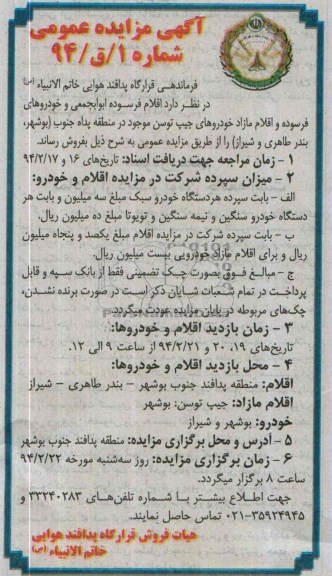 آگهی مزایده عمومی
شماره ۱/ق/۹۴
فرماندهـی قرارگاه پدافند هوایی خاتم الانبیاء (ص)
در نظـر دارد اقلام فرسـوده ابوابجمعی و خودروهای
فرسوده و اقلام مازاد خودروهای جیپ توسن موجود در منطقه پداه جنوب (بوشهر،
بندر طاهری و شیراز) را از طریق مزایده عمومی به شرح ذیل بفروش رساند.
۱ – زمان مراجعه جهت دریافت اسناد: تاریخ‌های ۱۶ و ۹۴/۲/۱۷
۲ – میزان سپرده شرکت در مزایده اقلام و خودرو:
الف – بابت سپرده هردستگاه خودرو سبک مبلغ سه میلیون و بابت هر
دستگاه خودرو سنگین و نیمه سنگین و تویوتا مبلغ ده میلیون ریال.
ب – بابت سپرده شرکت در مزایده اقلام مبلغ یکصد و پنجاه میلیون
ریال و برای اقلام مازاد خودرویی بیست میلیون ریال.
ج – مبالـغ فـوق بصورت چـک تضمینی فقط از بانک سـپه و قابل
پرداخـت در تمام شـعبات شـایان ذکر اسـت در صورت برنده نشـدن،
چک‌های مربوطه در پایان مزایده عودت میگردد.
۳ – زمان بازدید اقلام و خودروها:
تاریخ‌های ۱۹، ۲۰ و ۹۴/۲/۲۱ از ساعت ۹ الی ۱۲.
۴ – محل بازدید اقلام و خودروها:
اقلام: منطقه پدافند جنوب بوشهر – بندر طاهری – شیراز
اقلام مازاد: جیپ توسن: بوشهر
خودرو: بوشهر و شیراز
۵ – آدرس و محل برگزاری مزایده: منطقه پدافند جنوب بوشهر
۶ – زمان برگزاری مزایده: روز سه‌شنبه مورخه ۹۴/۲/۲۲
ساعت ۸ برگزار میگردد.
جهت اطـلاع بیشتـر بـا شـماره تلفن‌هـای ۳۳۲۴۰۲۸۳ و
۰۲۱-۳۵۹۲۴۹۴۵ تماس حاصل نمایند.
هیات فروش قرارگاه پدافند هوایی
خاتم الانبیاء (ص)